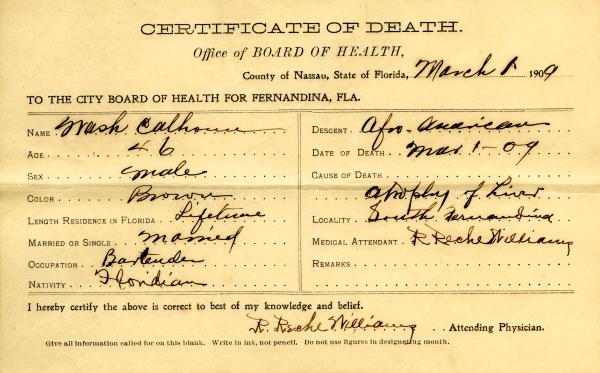 CERTIFICATE OF DEATH.
Office of BOARD OF HEALTH,
County of Nassau, State of Florida, March 1 1909
TO THE CITY BOARD OF HEALTH FOR FERNANDINA, FLA.
NAME Wash Calhoun
AGE 46
SEX Male
COLOR Brown
LENGTH RESIDENCE IN FLORIDA Lifetime
MARRIED OR SINGLE Married
OCCUPATION Bartender
NATIVITY Floridian
DESCENT Afro-American
DATE OF DEATH Mar 1-09
CAUSE OF DEATH
Atrophy of Liver
LOCALITY South Fernandina
MEDICAL ATTENDANT R Reche Williams
REMARKS
I hereby certify the above is correct to best of my knowledge and belief.
R. Reche Williams Attending Physician.
Give all information called for on this blank. Write in ink, not pencil. Do not use figures in designating month.